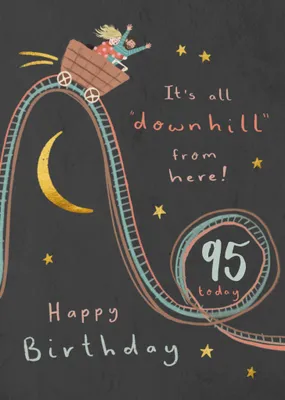 It's all
"downhill"
from
here!
95
today
Happy
Birthday